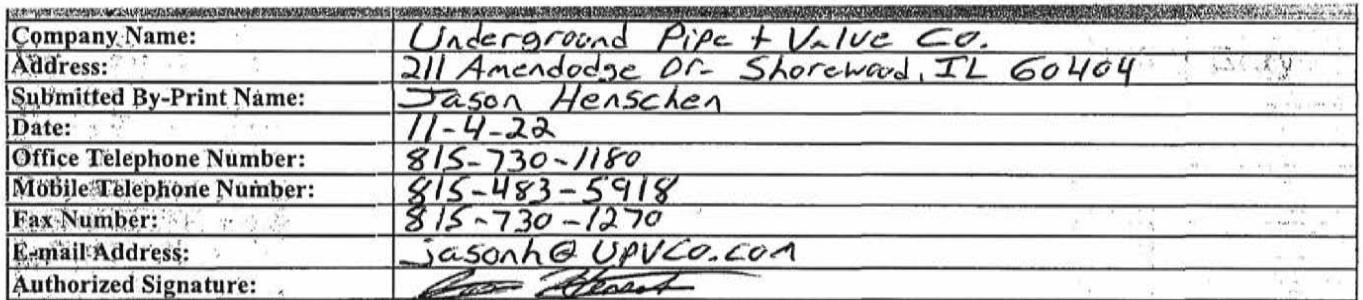 Company Name: Underground Pipe + Valve Co.
Address: 211 Amendodge Dr- Shorewood, IL 60404
Submitted By-Print Name: Jason Henschen
Date: 11-4-22
Office Telephone Number: 815-730-1180
Mobile Telephone Number: 815-483-5918
Fax Number: 815-730-1270
E-mail Address: jasonh@UPVCO.com
Authorized Signature: